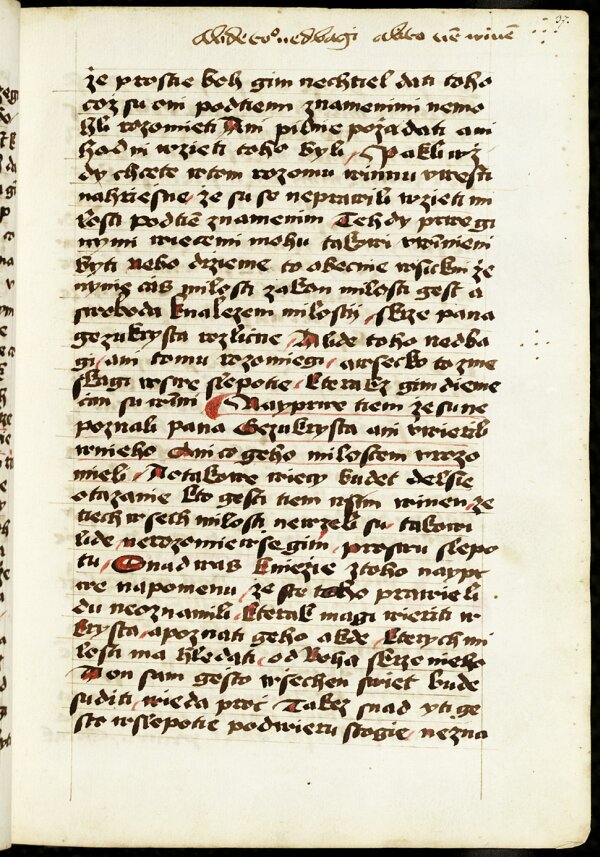 37.
A lide to° nedbagi a kto tiē winē
že prostie boh gim nechtiel dati toho
což su oni pod tiemi znamenimi nemo
hli rozomieti Ani pilnie požadati ani
hodni wzieti toho byli Pakli wž
dy chcete w tom rozomu winnu wwesti
na hriesne že su se neprawili wzieti mi
losti pod tiē znamenim Tehdy prwe gi
nymi wiecemi mohu takowi winnieni
byti nebo drzieme to obecnie wsickni že
nynie čas milosti zakon milosti gest a
swoboda k nalezem milostij skrze pana
gezukrysta rozlične A lide toho nedba
gi ani tomu rozomiegi a wsecko to zme
skagi w swe slepotie kterakz gim dieme
čim su winni Nayprwe tiem že su ne
poznali pana Gezukrysta ani wierili
w nieho Ani co geho milostem wrozo
mieli A o takowe wiecy budet delsie
otazanie kto gest tiem wstim winen ze
tiech wsech milosti ne wzeli su takowi
lide nerozomiewse gim prostru slepo
tu O nad was kniezie z toho naypr
we napomenu že ste toho prawie li
du neoznamili kterak magi wieriti w
krysta a poznati geho a kde kterych mi
losti ma hledati od Boha skrze nieho
A on sam gesto wsechen swiet bude
suditi wieda proč Takez snad y ti ge
sto w slepotie podwieru stogie nezna